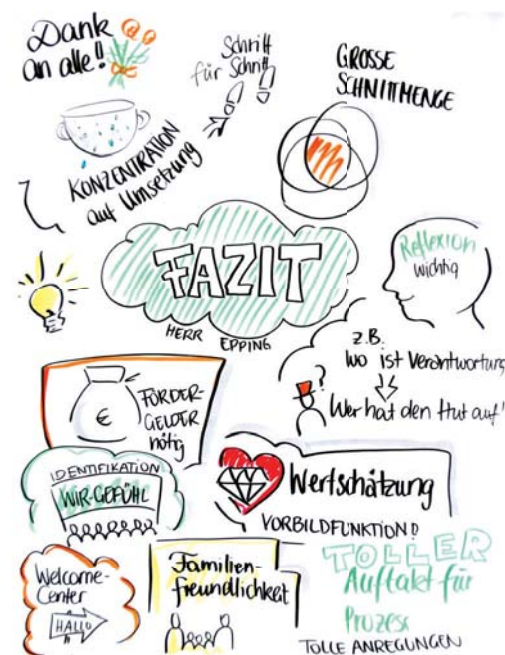 Dank
an alle!!
Schritt
für Schritt
GROSSE
SCHNITTMENGE
KONZENTRATION
auf Umsetzung
FAZIT
HERR EPPING
Reflexion
wichtig
z.B.
wo ist Verantwortung
?
Wer hat den Hut auf?
€
FÖRDER-
GELDER
nötig
IDENTIFIKATION
WIR-GEFÜHL
Wertschätzung
VORBILDFUNKTION!
Welcome-
Center
HALLO
Familien-
freundlichkeit
TOLLER
Auftakt für
Prozess
TOLLE ANREGUNGEN